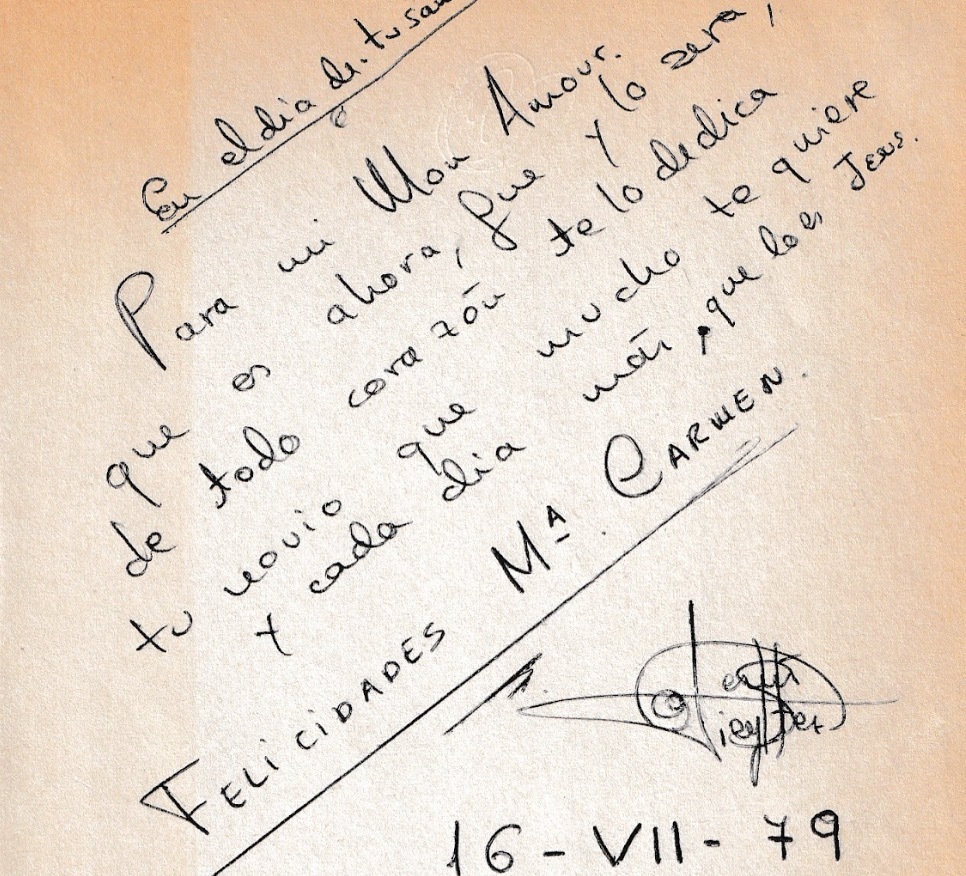 En el dia de tu san
Para mi Mon Amour.
que es ahora, fue y lo sera,
de todo corazón te lo dedica
tu novio que mucho te quiere
y cada dia más, que lo es Jesus.
FELICIDADES Mª CARMEN.
16-VII-79